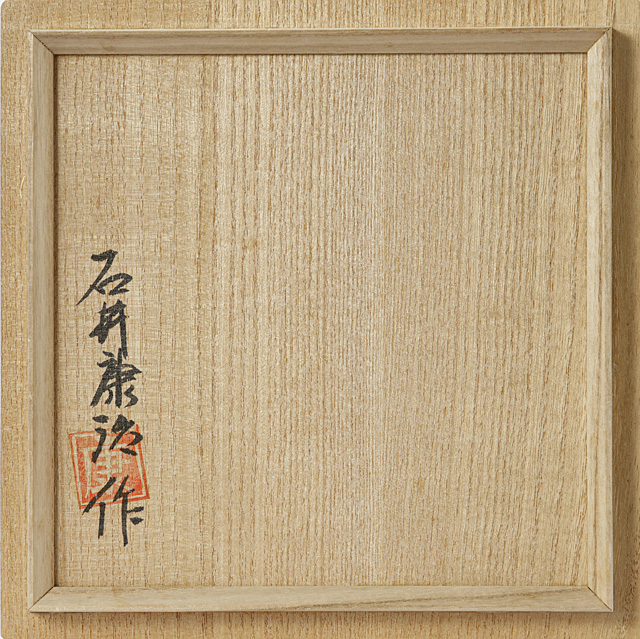 石井康治作